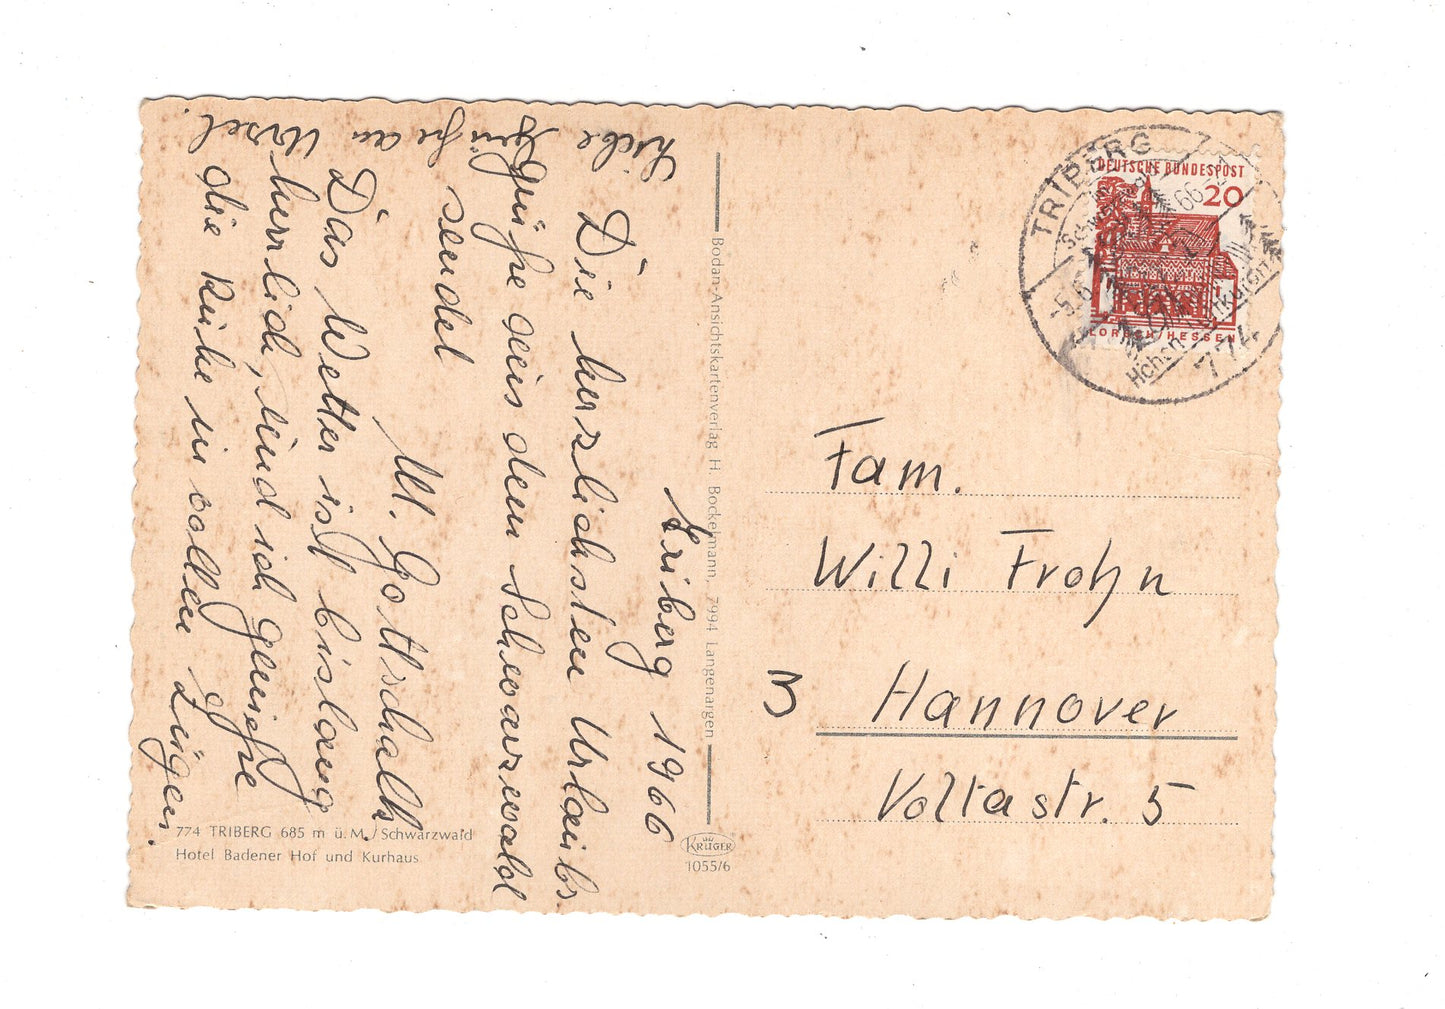 Triberg 1966
Die herzlichsten Urlaubs
grüße aus dem Schwarzwald
sendet
M. Gottschalk
Das Wetter ist bislang
herrlich, und ich genieße
die Ruhe in vollen Zügen.
Liebe Grüße an Ursel.
774 TRIBERG 685 m ü. M. / Schwarzwald
Hotel Badener Hof und Kurhaus
Bodan-Ansichtskartenverlag H. Bockelmann, 7994 Langenargen
KRÜGER
1055/6
DEUTSCHE BUNDESPOST
20
LORSCH/HESSEN
TRIBERG
-5.6.66-
774
Fam.
Willi Frohn
3 Hannover
Voltastr. 5